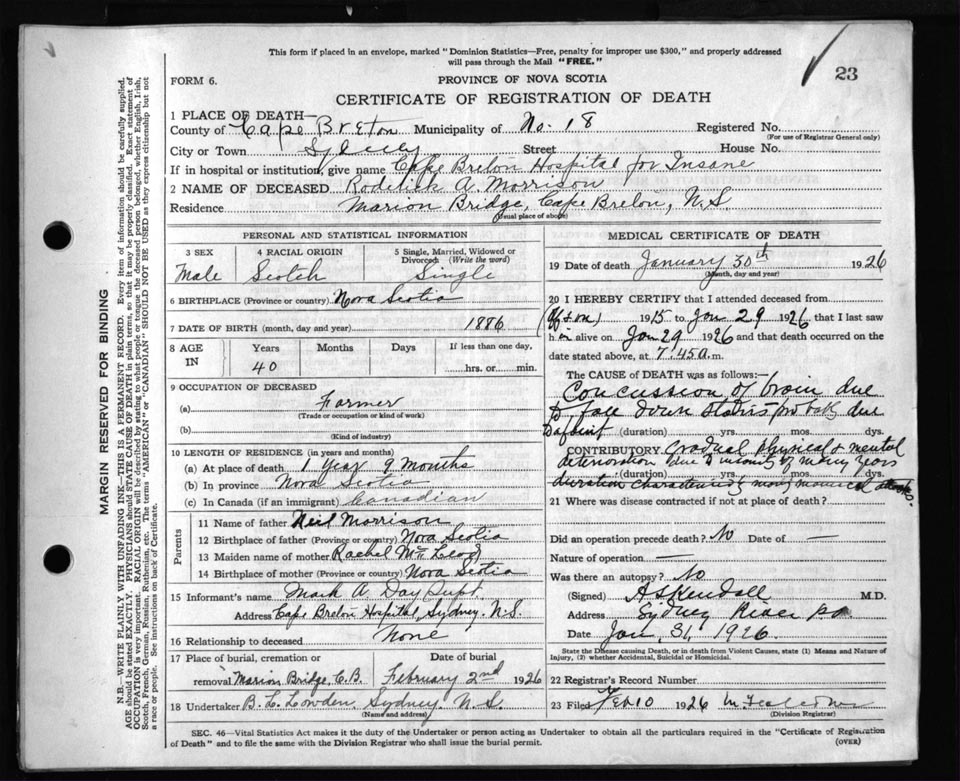 This form if placed in an envelope, marked "Dominion Statistics—Free, penalty for improper use $300," and properly addressed
will pass through the Mail "FREE."
23
FORM 6.
PROVINCE OF NOVA SCOTIA
CERTIFICATE OF REGISTRATION OF DEATH
1 PLACE OF DEATH—
County of Cape Breton Municipality of No. 18 Registered No.
(For use of Registrar General only)
City or Town Sydney Street House No.
If in hospital or institution, give name Cape Breton Hospital for Insane
2 NAME OF DECEASED Roderick A. Morrison
Residence Marion Bridge, Cape Breton, N.S
(Usual place of abode)
PERSONAL AND STATISTICAL INFORMATION
3 SEX 4 RACIAL ORIGIN 5 Single, Married, Widowed or
Divorced (Write the word)
Male Scotch Single
6 BIRTHPLACE (Province or country) Nova Scotia
7 DATE OF BIRTH (month, day and year) 1886
8 AGE IN Years Months Days If less than one day,
40 hrs. or min.
9 OCCUPATION OF DECEASED
(a) Farmer
(Trade or occupation or kind of work)
(b)
(Kind of industry)
10 LENGTH OF RESIDENCE (in years and months)
(a) At place of death 1 Year 9 Months
(b) In province Nova Scotia
(c) In Canada (if an immigrant) Canadian
Parents
11 Name of father Neil Morrison
12 Birthplace of father (Province or country) Nova Scotia
13 Maiden name of mother Rachel McLeod
14 Birthplace of mother (Province or country) Nova Scotia
15 Informant's name Mark A Day Supt.
Address Cape Breton Hospital, Sydney. N.S.
16 Relationship to deceased None
17 Place of burial, cremation or Date of burial
removal Marion Bridge, C.B. February 2nd 1926
18 Undertaker B. L. Lowden Sydney N.S.
(Name and address)
MEDICAL CERTIFICATE OF DEATH
19 Date of death January 30th 1926
(Month, day and year)
20 I HEREBY CERTIFY that I attended deceased from
(off & on) 1915 to Jan 29 1926 that I last saw
him alive on Jan 29 1926 and that death occurred on the
date stated above, at 7.45 a.m.
The CAUSE OF DEATH was as follows:—
Concussion of brain due
to fall down stairs probably due
to a faint (duration) yrs. mos. dys.
CONTRIBUTORY Gradual physical & mental
deterioration due to insanity of many years
(duration) yrs. mos. dys.
duration characterized by many maniacal attacks.
21 Where was disease contracted if not at place of death?
Did an operation precede death? No Date of —
Nature of operation —
Was there an autopsy? No
(Signed) A S Kendall M.D.
Address Sydney River P.O.
Date Jan, 31, 1926.
State the Disease causing Death, or in death from Violent Causes, state (1) Means and Nature of
Injury, (2) whether Accidental, Suicidal or Homicidal.
22 Registrar's Record Number
23 Filed Feb 10 1926
(Division Registrar)
SEC. 46—Vital Statistics Act makes it the duty of the Undertaker or person acting as Undertaker to obtain all the particulars required in the "Certificate of Registration
of Death" and to file the same with the Division Registrar who shall issue the burial permit.
(OVER)
MARGIN RESERVED FOR BINDING
N.B.—WRITE PLAINLY WITH UNFADING INK—THIS IS A PERMANENT RECORD. Every item of information should be carefully supplied.
AGE should be stated EXACTLY. PHYSICIANS should STATE CAUSE OF DEATH in plain terms, so that it may be properly classified. Exact statement of
OCCUPATION is very important. RACIAL ORIGIN will be described by stating to what people or tongue the deceased person belonged, whether English, Irish,
Scotch, French, German, Russian, Ruthenian, etc. The terms "AMERICAN" or "CANADIAN" SHOULD NOT BE USED as they express citizenship but not
a race or people. See instructions on back of Certificate.